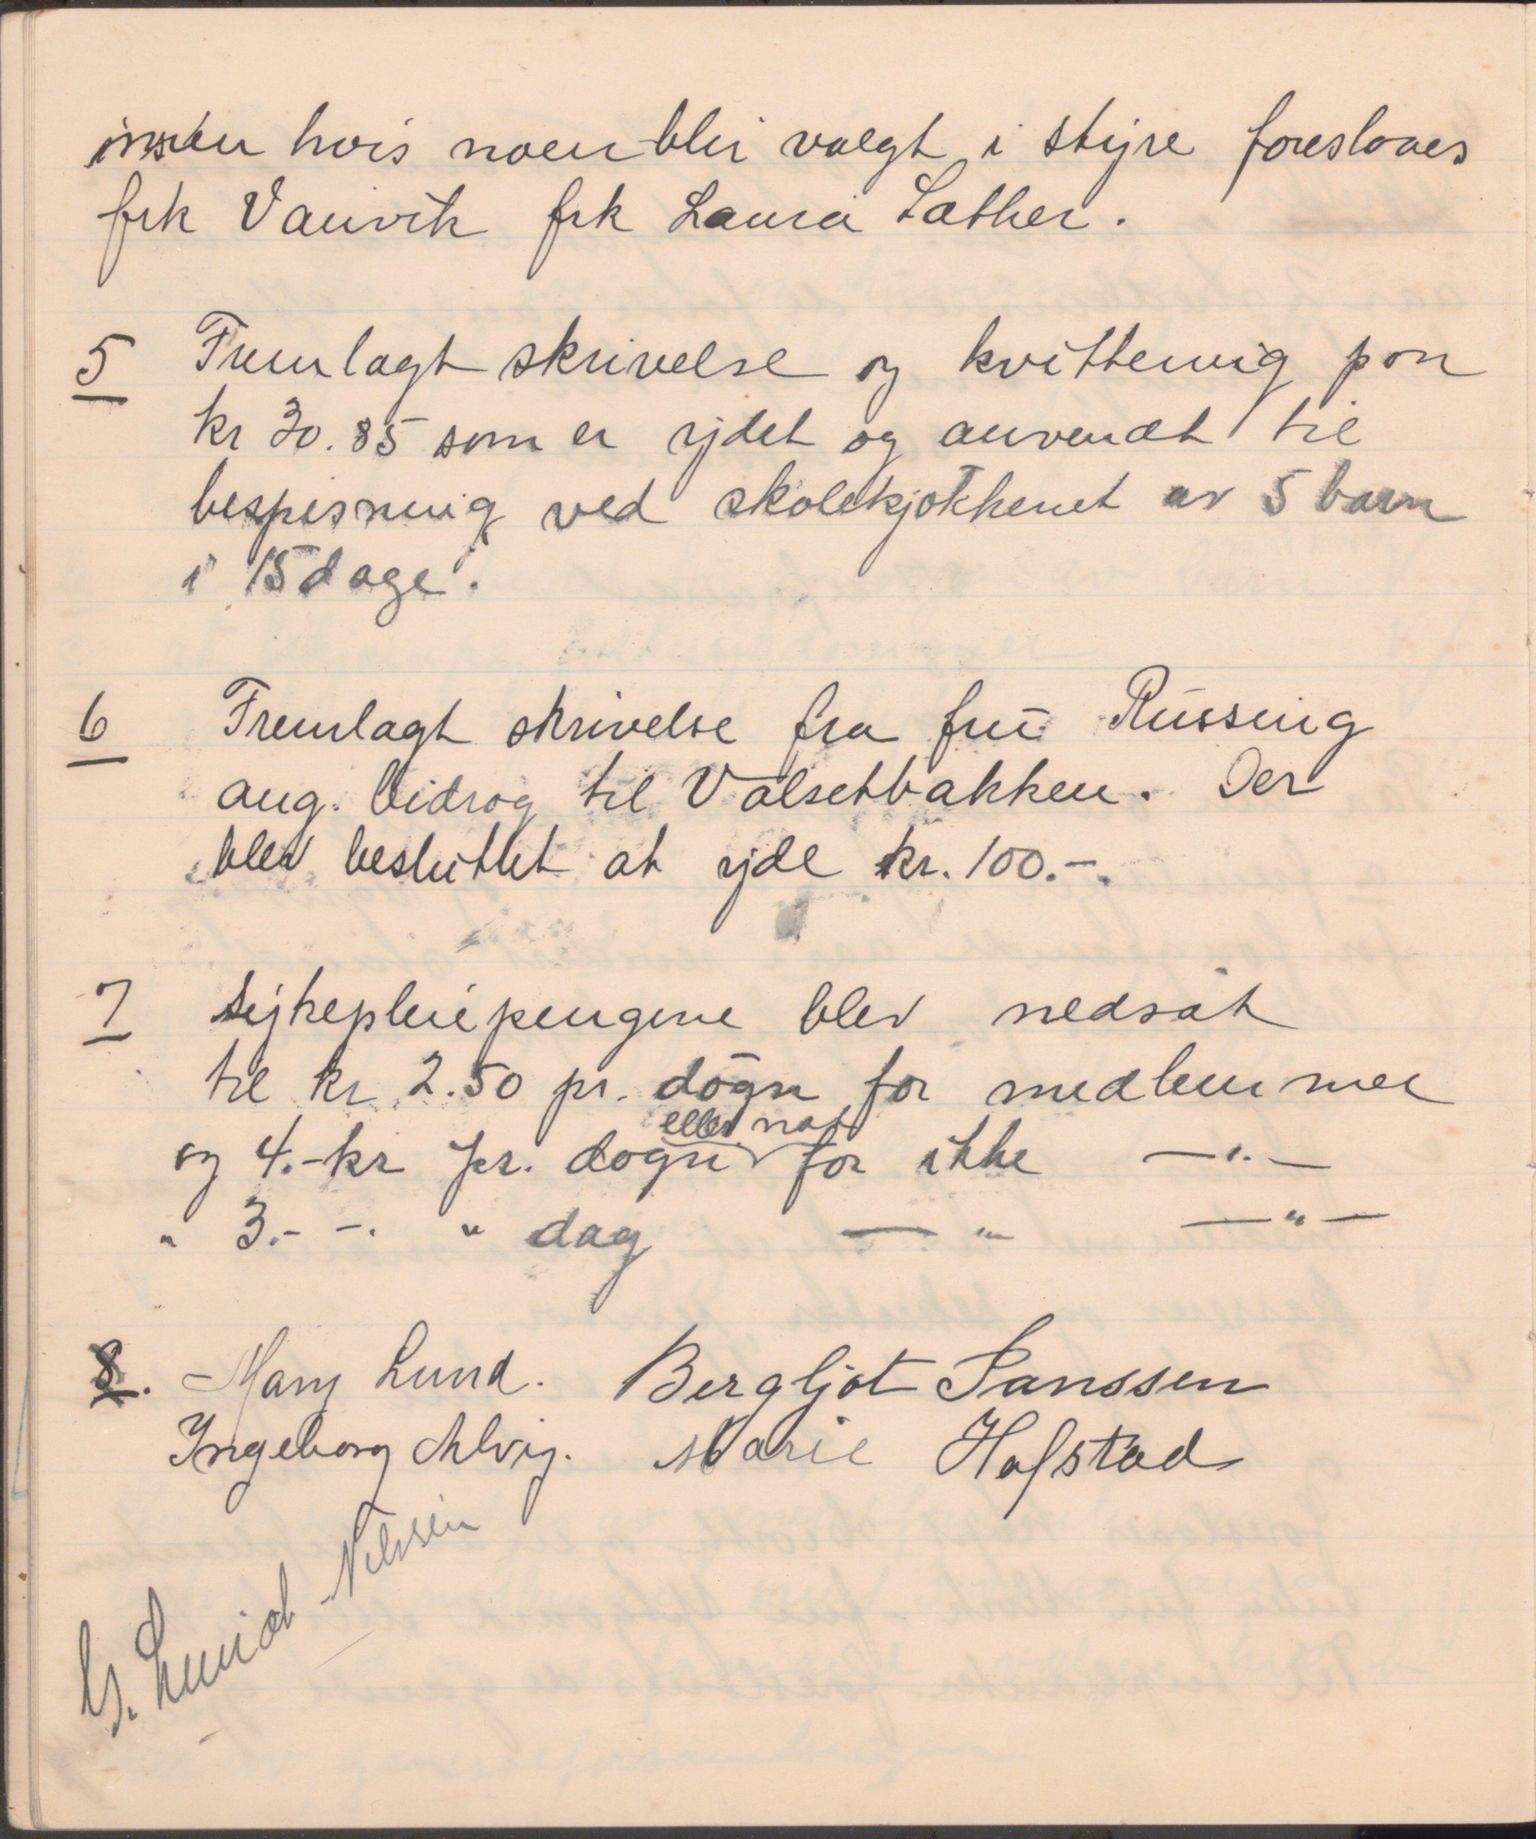 hvis noen blir valgt i styre foreslaaes
frk Vanvik frk Laura Sæther.
5 Fremlagt skrivelse og kvittering paa
kr 30.85 som er ydet og anvendt til
bespisning ved skolekjøkkenet av 5 barn
i 15 dage.
6 Fremlagt skrivelse fra fru Russing
ang. bidrag til Valsetbakken. Der
blev besluttet at yde kr. 100.-.
7 Sykepleiepengene blev nedsat
til kr 2.50 pr. døgn for medlemmer
eller nat
og 4.-kr pr. døgn for ikke —"—
" 3.- -. " dag — " —"—
8. Mary Lund. Bergljot Janssen
Ingeborg Alvig. Marie Hofstad
G. Schmidt Nilssen